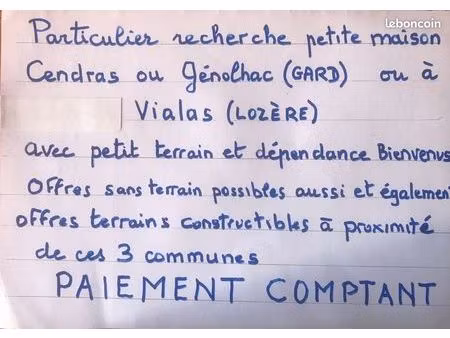 leboncoin
Particulier recherche petite maison
Cendras ou Génolhac (GARD) ou à
Vialas (LOZÈRE)
avec petit terrain et dépendance Bienvenus
Offres sans terrain possibles aussi et égalemen
offres terrains constructibles à proximité
de ces 3 communes
PAIEMENT COMPTANT